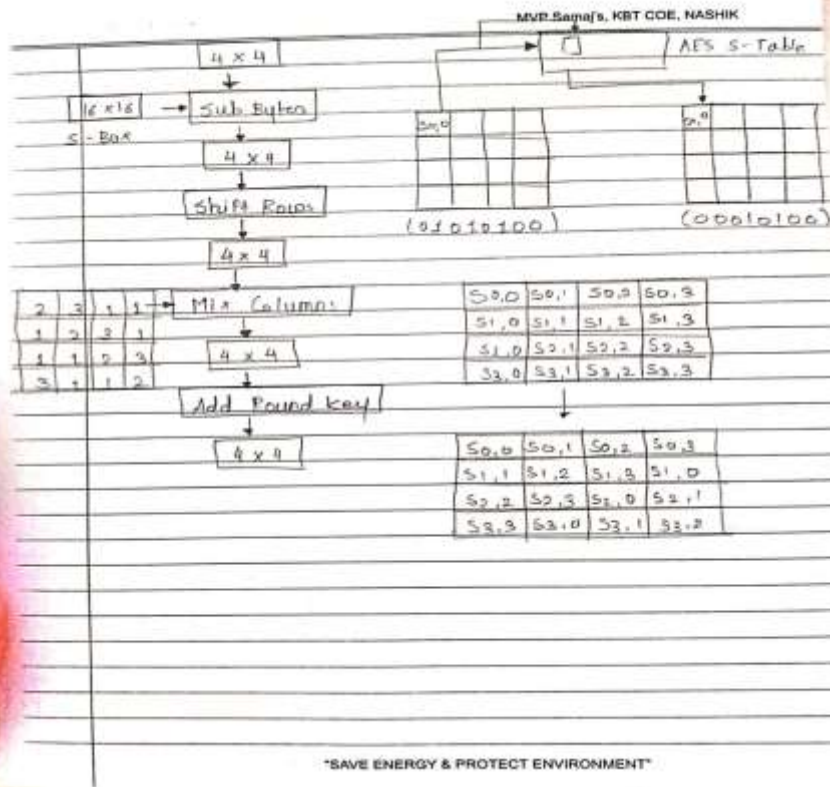 MVP Samaj's, KBT COE, NASHIK
4 x 4
16 x 16
S-Box
Sub Bytes
4 x 4
Shift Rows
4 x 4
2 3 1 1
1 2 3 1
1 1 2 3
3 1 1 2
Mix Columns
4 x 4
Add Round Key
4 x 4
AES S-Table
S0,0
(01010100)
S0,0
(00010100)
S0,0 S0,1 S0,2 S0,3
S1,0 S1,1 S1,2 S1,3
S2,0 S2,1 S2,2 S2,3
S3,0 S3,1 S3,2 S3,3
S0,0 S0,1 S0,2 S0,3
S1,1 S1,2 S1,3 S1,0
S2,2 S2,3 S2,0 S2,1
S3,3 S3,0 S3,1 S3,2
"SAVE ENERGY & PROTECT ENVIRONMENT"